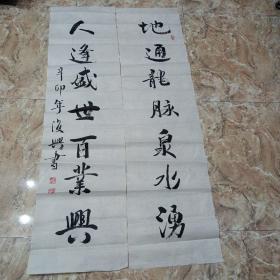 地通龍脉泉水湧
人逢盛世百業興
辛卯年 復興書